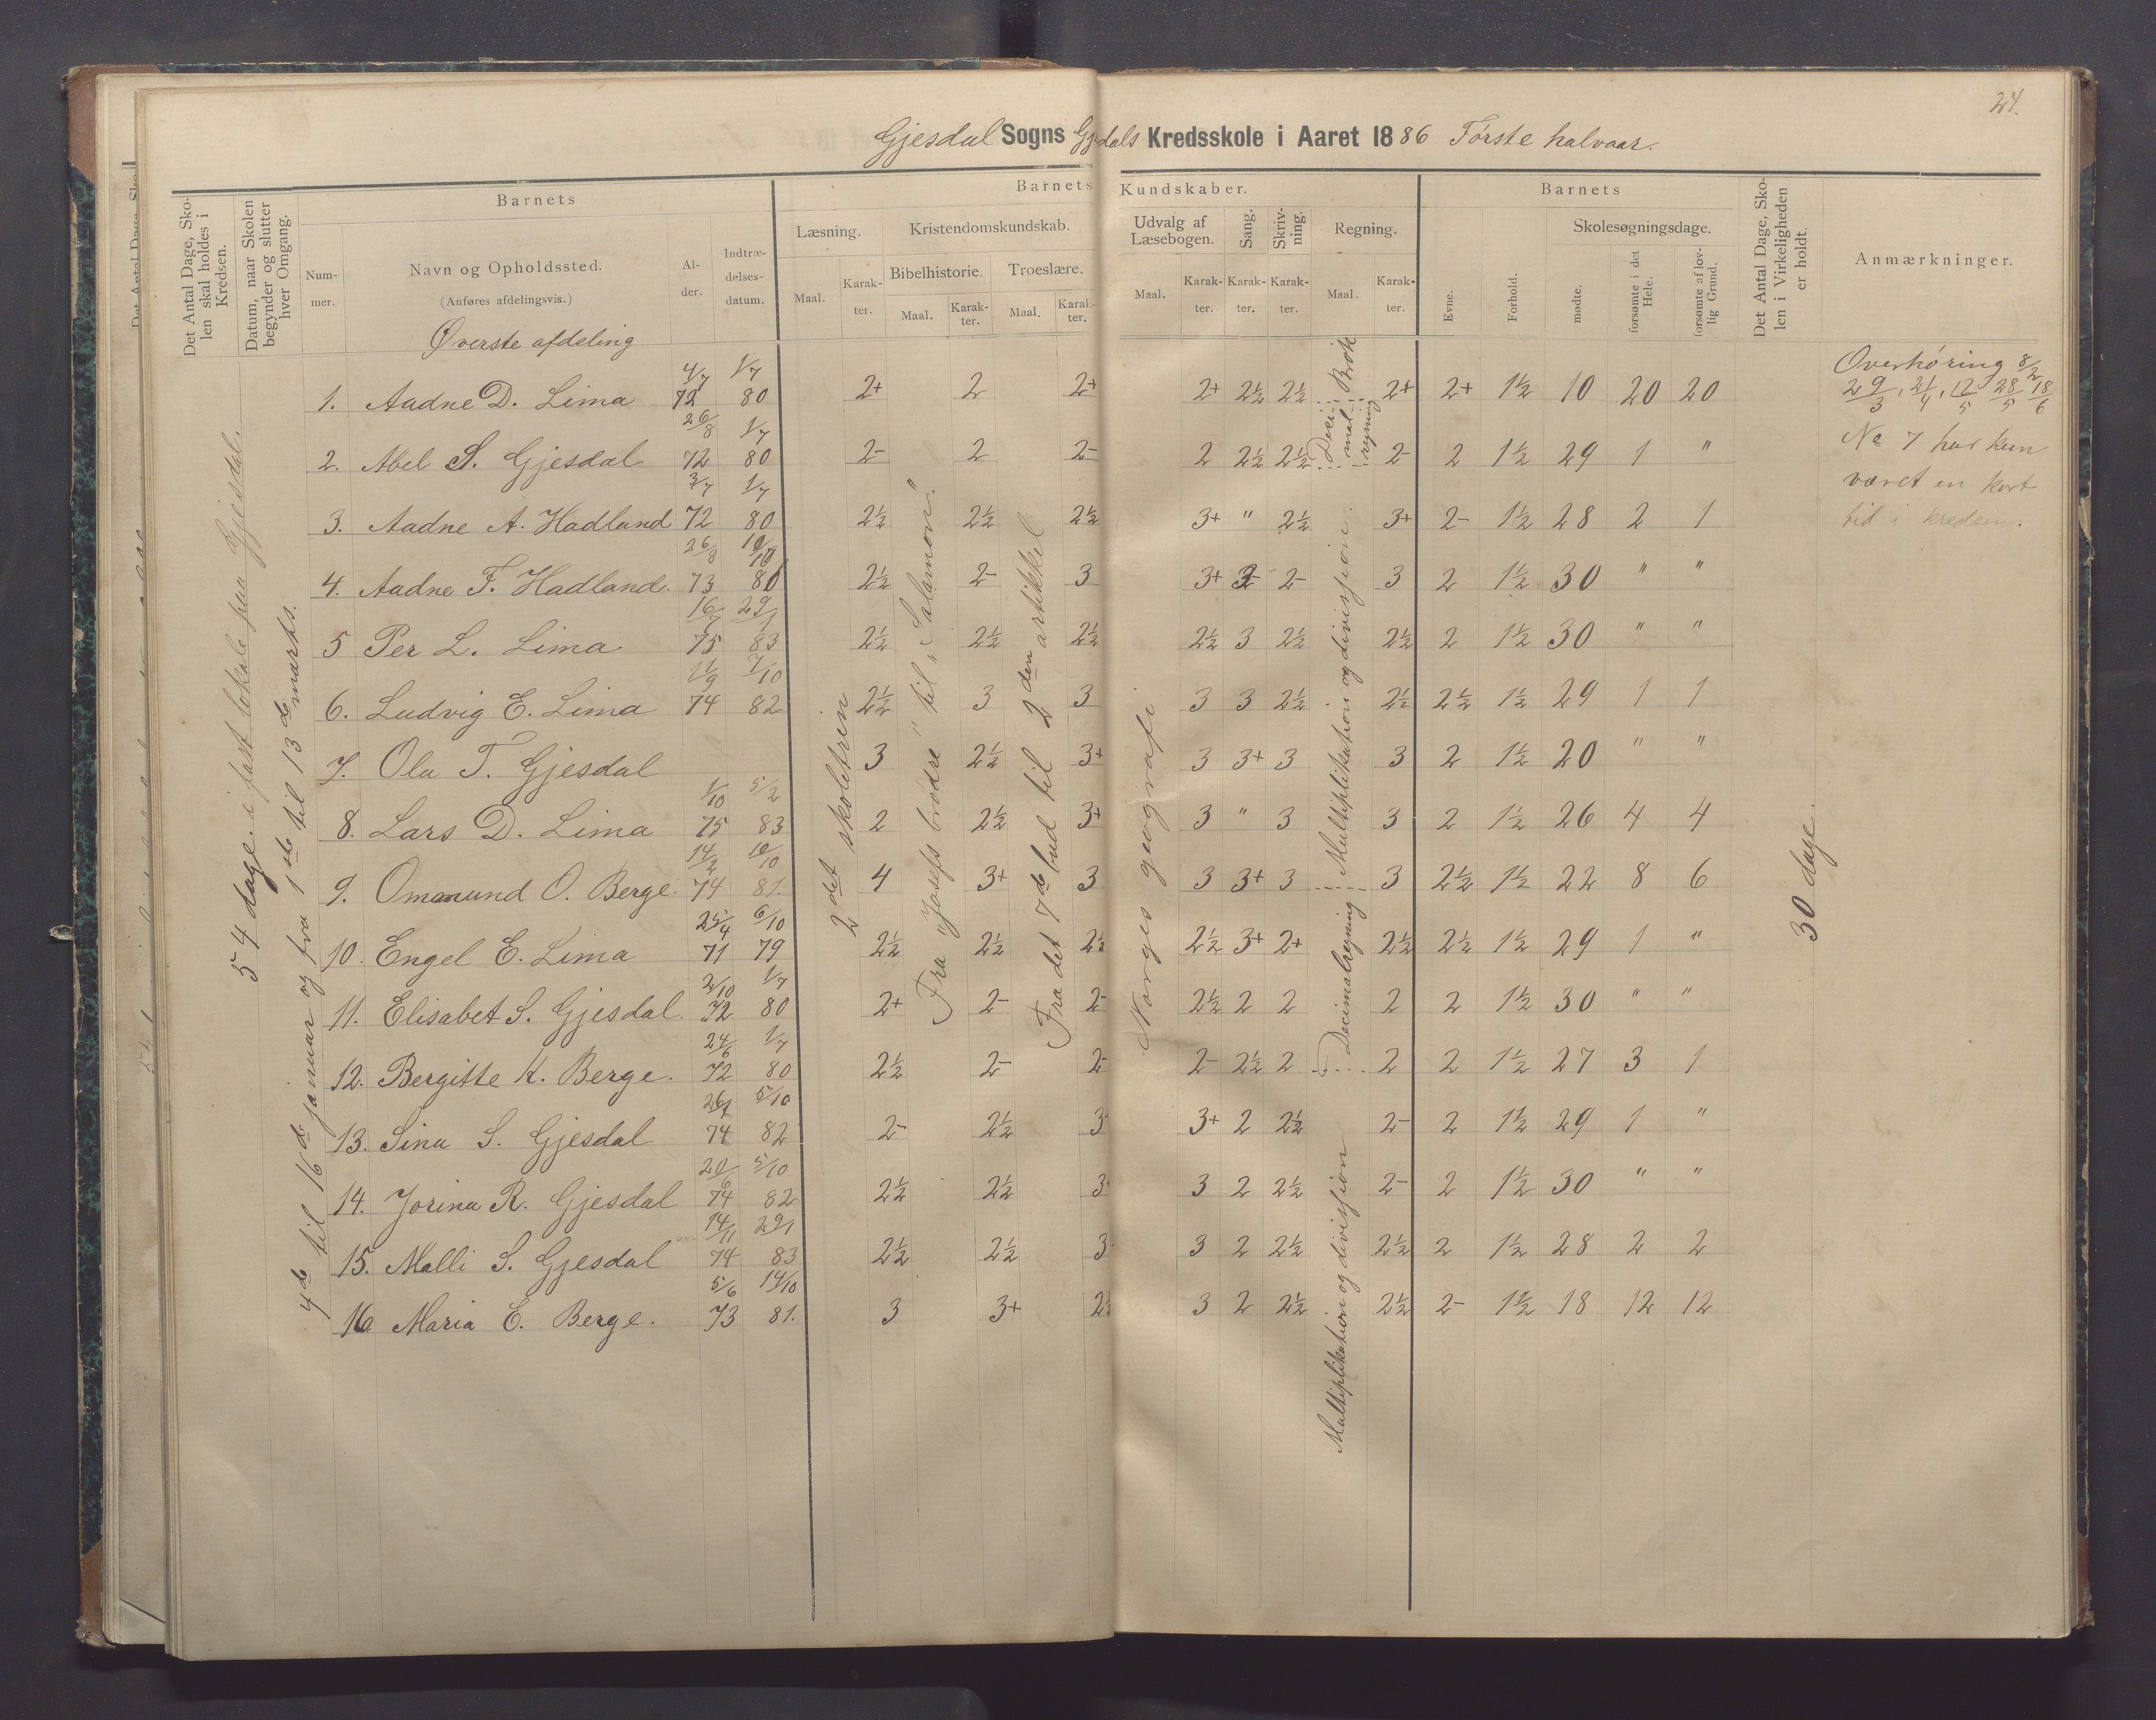 24.
Gjesdal Sogns Gjesdals Kredsskole i Aaret 1886 Første halvaar.
Det Antal Dage, Skolen skal holdes i Kredsen.
Datum, naar Skolen begynder og slutter hver Omgang.
Barnets
Nummer.
Navn og Opholdssted.
(Anføres afdelingsvis.)
Alder.
Indtrædelsesdatum.
Barnets Kundskaber.
Læsning.
Maal. Karakter.
Kristendomskundskab.
Bibelhistorie. Troeslære.
Maal. Karakter. Maal. Karakter.
Udvalg af Læsebogen.
Maal. Karakter.
Sang.
Karakter.
Skrivning.
Karakter.
Regning.
Maal. Karakter.
Barnets
Evne.
Forhold.
Skolesøgningsdage.
mødte.
forsømte i det Hele.
forsømte af lovlig Grund.
Det Antal Dage, Skolen i Virkeligheden er holdt.
Anmærkninger.
Øverste afdeling
1. Aadne D. Lima 4/7 72 1/7 80 2+ 2 2+ 2+ 2½ 2½ 2+ 2+ 1½ 10 20 20
2. Abel S. Gjesdal 26/8 72 1/7 80 2- 2 2- 2 2½ 2½ 2- 2 1½ 29 1 "
3. Aadne A. Hadland 3/7 72 1/7 80 2½ 2½ 2½ 3+ " 2½ 3+ 2- 1½ 28 2 1
4. Aadne F. Hadland. 26/8 73 80 2½ 2- 3 3+ 2- 3 2 1½ 30 " "
5 Per L. Lima 16/7 75 29/1 83 2½ 2½ 2½ 2½ 3 2½ 2½ 2 1½ 30 " "
6. Ludvig E. Lima 74 7/10 82 2½ 3 3 3 3 2½ 2½ 2½ 1½ 29 1 1
7. Ola T. Gjesdal 3 2½ 3+ 3 3+ 3 3 2 1½ 20 " "
8. Lars D. Lima 1/10 75 5/2 83 2 2½ 3+ 3 " 3 3 2 1½ 26 4 4
9. Ommund O. Berge. 14/2 74 10/10 81. 4 3+ 3 3 3+ 3 3 2½ 1½ 22 8 6
10. Engel E. Lima 25/4 71 6/10 79 2½ 2½ 2½ 2½ 3+ 2+ 2½ 2½ 1½ 29 1 "
11. Elisabet S. Gjesdal. 2/10 72 1/7 80 2+ 2- 2- 2½ 2 2 2 2 1½ 30 " "
12. Bergitte K. Berge. 24/6 72 1/7 80 2½ 2- 2- 2- 2½ 2 2 2 1½ 27 3 1
13. Sina S. Gjesdal 26/1 74 5/10 82 2- 2½ 3 3+ 2 2½ 2- 2 1½ 29 1 "
14. Jorina R. Gjesdal 20/6 74 5/10 82 2½ 2½ 3 3 2 2½ 2- 2 1½ 30 " "
15. Malli S. Gjesdal 14/11 74 29/1 83 2½ 2½ 3 3 2 2½ 2½ 2 1½ 28 2 2
16. Maria E. Berge. 5/6 73 14/10 81. 3 3+ 2½ 3 2 2½ 2½ 2- 1½ 18 12 12
54 dage. i fast lokale paa Gjesdal.
4de til 16de januar og fra 1ste til 13de marts.
2det skoletrin
Fra "Josefs brødre" til "Salamon".
Fra det 7de bud til 2den artikkel
Norges geografi
Decimal Brøk regning
Multiplikation og divisjion.
Decimalregning
Multiplikation og divisjion
30 dage.
Overhøring 8/2
29/3, 21/4, 12/5 28/5 18/6
No 7 har kun
været en kort
tid i kredsen.